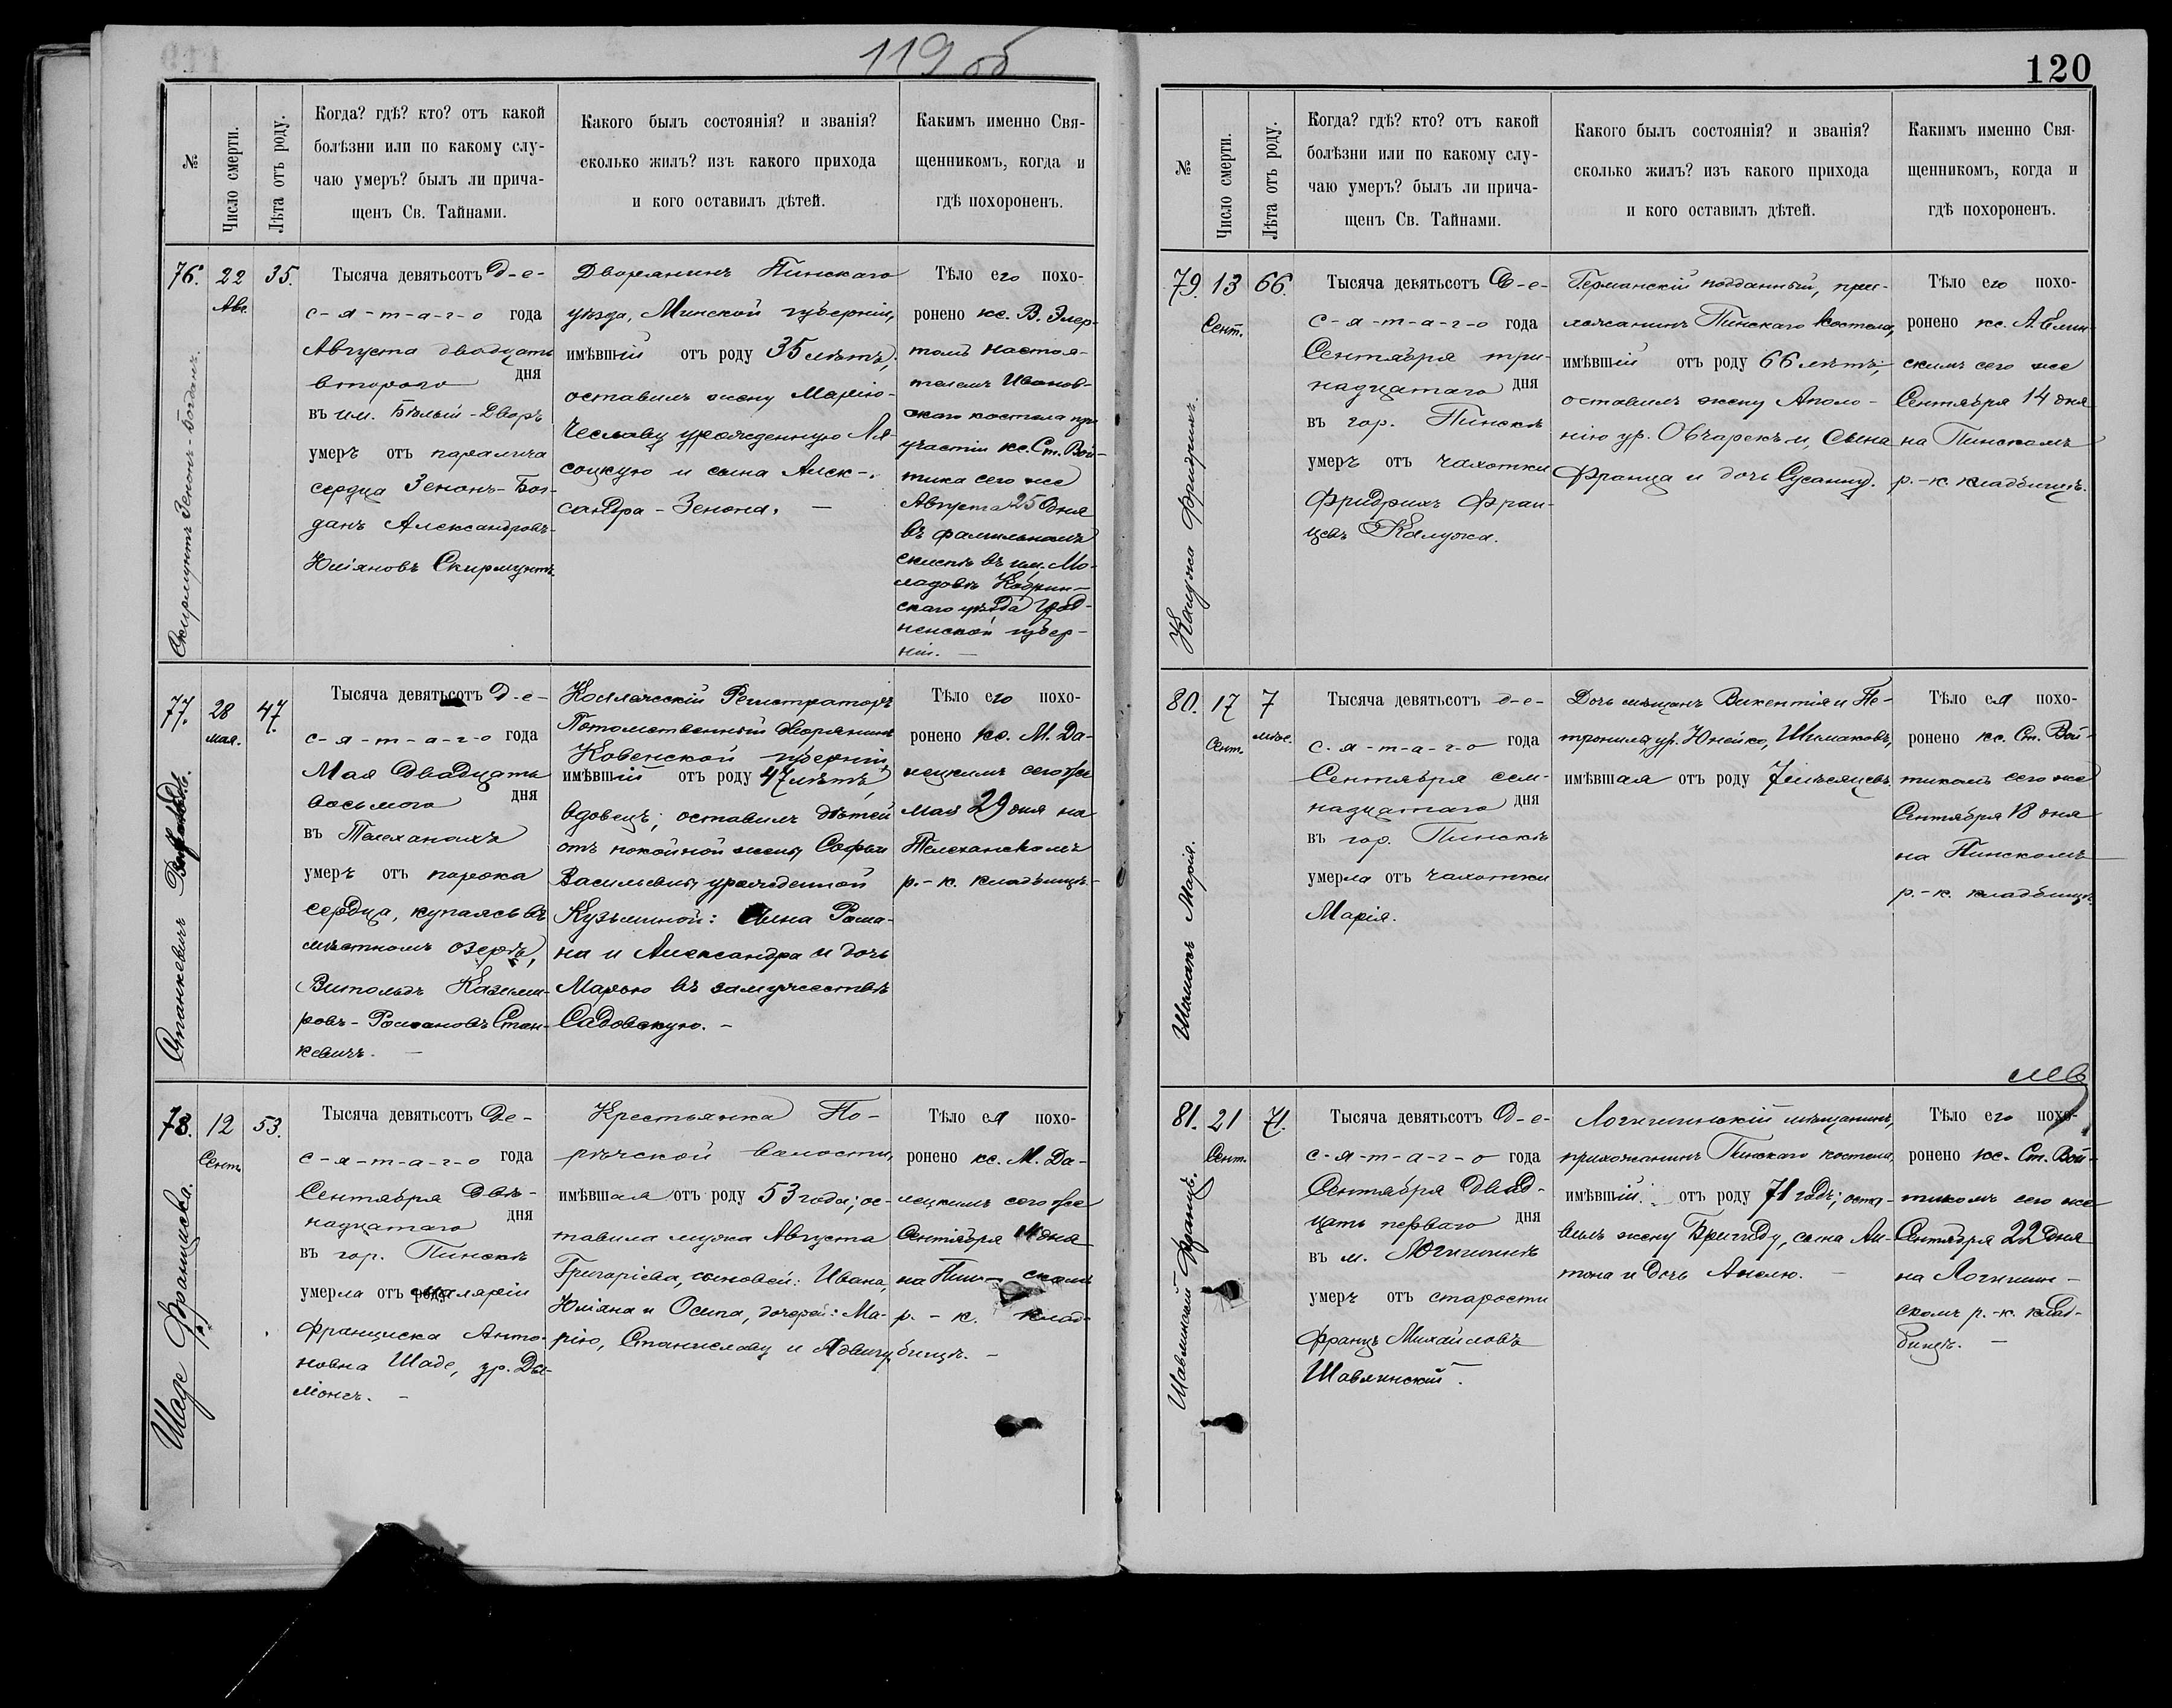 119 об
№
Число смерти.
Лѣта отъ роду.
Когда? гдѣ? кто? отъ какой
болѣзни или по какому слу-
чаю умеръ? былъ ли прича-
щенъ Св. Тайнами.
Какого былъ состоянія? и званія?
сколько жилъ? изъ какого прихода
и кого оставилъ дѣтей.
Какимъ именно Свя-
щенникомъ, когда и
гдѣ похороненъ.
76.
Скирмунтъ Зенонъ-Богданъ.
22
Авг.
35.
Тысяча девятьсотъ д-е-
с-я-т-а-г-о года
Августа двадцать
второго дня
въ им. Бѣлый-Дворъ
умеръ отъ паралича
сердца Зенонъ-Бог-
данъ Александровъ-
Юліановъ Скирмунтъ
Дворянинъ Пинскаго
уѣзда, Минской губерніи,
имѣвшій отъ роду 35 лѣтъ,
оставилъ жену Марію-
Чеславу урожденную Ля-
соцкую и сына Алек-
сандра-Зенона. —
Тѣло его похо-
ронено кс. В. Элер-
томъ настоя-
телемъ Иванов-
скаго костела при
участіи кс. Ст. Вой-
тика сего же
Августа 25 дня
въ фамильномъ
склепѣ въ им. Мо-
ладовѣ Кобрин-
скаго уѣзда Грод-
ненской губер-
ніи. —
77.
Станкевичъ
28
мая.
47.
Тысяча девятьсотъ Д-е-
с-я-т-а-г-о года
Мая двадцать
восьмого дня
въ Телеханахъ
умеръ отъ порока
сердца, купаясь въ
мѣстномъ озерѣ,
Витольдъ Казими-
ровъ-Романовъ Стан-
кевичъ. —
Коллежскій Регистраторъ
Потомственный дворянинъ
Ковенской губерніи,
имѣвшій отъ роду 47 лѣтъ,
вдовецъ; оставилъ дѣтей
отъ покойной жены Софьи
Васильевны урожденной
Кузьминой: сына Рома-
на и Александра и дочь
Марью въ замужествѣ
Садовскую. —
Тѣло его похо-
ронено кс. М. Да-
лецкимъ сего же
мая 29 дня на
Телеханскомъ
р.-к. кладбищѣ.
78.
Шаде Франциска.
12
Сент.
53.
Тысяча девятьсотъ Де-
с-я-т-а-г-о года
Сентября двѣ-
надцатаго дня
въ гор. Пинскѣ
умерла отъ маляріи
Франциска Анто-
новна Шаде, ур. Да-
ліонсъ. —
Крестьянка По-
рѣчской волости,
имѣвшая отъ роду 53 года; ос-
тавила мужа Августа
Григоріева, сыновей: Ивана,
Юліана и Осипа, дочерей: Ма-
рію, Станиславу и Ядвигу.
Тѣло ея похо-
ронено кс. М. Да-
лецкимъ сего же
Сентября 14 дня
на Пин- скомъ
р.-к. клад-
бищѣ. —
120
№
Число смерти.
Лѣта отъ роду.
Когда? гдѣ? кто? отъ какой
болѣзни или по какому слу-
чаю умеръ? былъ ли прича-
щенъ Св. Тайнами.
Какого былъ состоянія? и званія?
сколько жилъ? изъ какого прихода
и кого оставилъ дѣтей.
Какимъ именно Свя-
щенникомъ, когда и
гдѣ похороненъ.
79.
Калужа Фридрихъ.
13
Сент.
66.
Тысяча девятьсотъ д-е-
с-я-т-а-г-о года
Сентября три-
надцатаго дня
въ гор. Пинскѣ
умеръ отъ чахотки
Фридрихъ Фран-
цевъ Калужа.
Германскій подданный, при-
хожанинъ Пинскаго костела,
имѣвшій отъ роду 66 лѣтъ;
оставилъ жену Аполо-
нію ур. Овчарекъ и, сына
Франца и дочь Сусанну.
Тѣло его похо-
ронено кс. А. Елин-
скимъ сего же
Сентября 14 дня
на Пинскомъ
р.-к. кладбищѣ.
80.
Шимакъ Марія.
17
Сент.
7
мѣс.
Тысяча девятьсотъ д-е-
с-я-т-а-г-о года
Сентября сем-
надцатаго дня
въ гор. Пинскѣ
умерла отъ чахотки
Марія.
Дочь мѣщанъ Викентія и Пе-
тронили, ур. Юнейко, Шимаковъ,
имѣвшая отъ роду 7 мѣсяцевъ.
Тѣло ея похо-
ронено кс. Ст. Вой-
тикомъ сего же
Сентября 18 дня
на Пинскомъ
р.-к. кладбищѣ.
81.
Шавлинскій Францъ.
21
Сент.
71.
Тысяча девятьсотъ д-е-
с-я-т-а-г-о года
Сентября двад-
цать перваго дня
въ м. Логишинѣ
умеръ отъ старости
Францъ Михайловъ
Шавлинскій.
Логишинскій мѣщанинъ,
прихожанинъ Пинскаго костела,
имѣвшій отъ роду 71 годъ; оста-
вилъ жену Бригиду, сына Ан-
тона и дочь Анелю. —
Тѣло его похо-
ронено кс. Ст. Вой-
тикомъ сего же
Сентября 22 дня
на Логишин-
скомъ р.-к. клад-
бищѣ. —